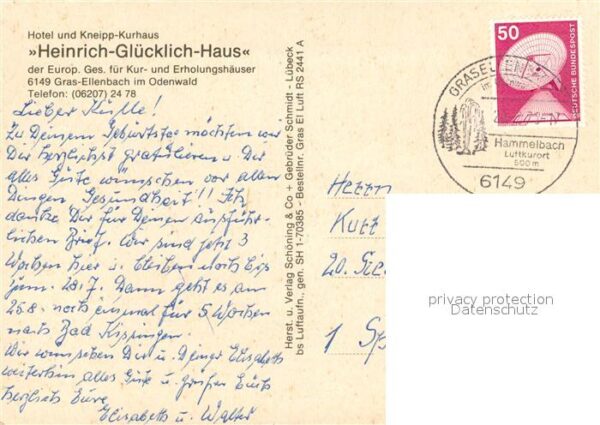 Hotel und Kneipp-Kurhaus
»Heinrich-Glücklich-Haus«
der Europ. Ges. für Kur- und Erholungshäuser
6149 Gras-Ellenbach im Odenwald
Telefon: (06207) 24 78
Lieber
Zu Deinem Geburtstag möchten wir
Dir herzlichst gratulieren u. Dir
alles Gute wünschen vor allen
Dingen Gesundheit!!! Ich
danke Dir für Deinen ausführ-
lichen Brief. Wir sind jetzt 3
Wochen hier u. bleiben noch bis
zum 20.7. Dann geht es am
25.8. noch einmal für 5 Wochen
nach Bad Kissingen.
Wir wünschen Dir u. Deiner Elisabeth
weiterhin alles Gute u. grüßen Euch
herzlich Eure
Elisabeth u. Walter
Herst. u. Verlag Schöning & Co + Gebrüder Schmidt - Lübeck
bs Luftaufn., gen. SH 1-70385 - Bestellnr. Gras El Luft RS 2441 A
50
DEUTSCHE BUNDESPOST
GRASELLEN
Hammelbach
Luftkurort
500m
6149
Herrn
Kurt
20.
1 Sp
privacy protection
Datenschutz